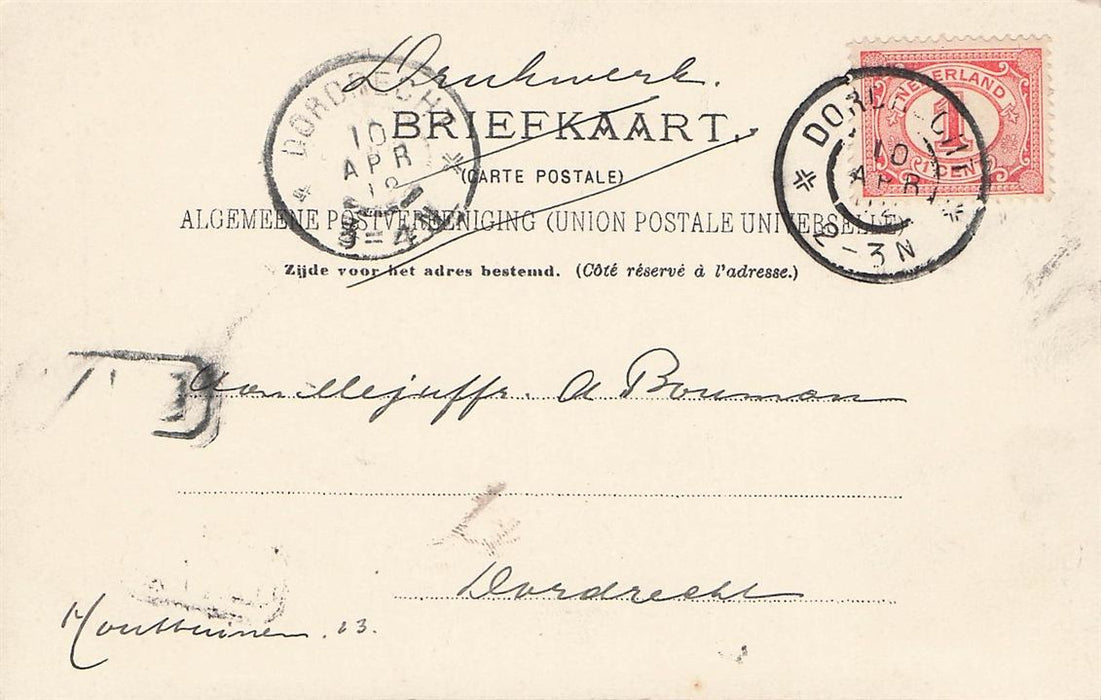 Drukwerk.
BRIEFKAART.
(CARTE POSTALE)
ALGEMEENE POSTVEREENIGING (UNION POSTALE UNIVERSELLE)
Zijde voor het adres bestemd. (Côté réservé à l'adresse.)
DORDRECHT
10
APR
3=4
NEDERLAND
1
1 CENT
DORDRECHT
10
APR
2-3N
Aan Mejuffr. A Bouman
Dordrecht
Houttuinen. 23.